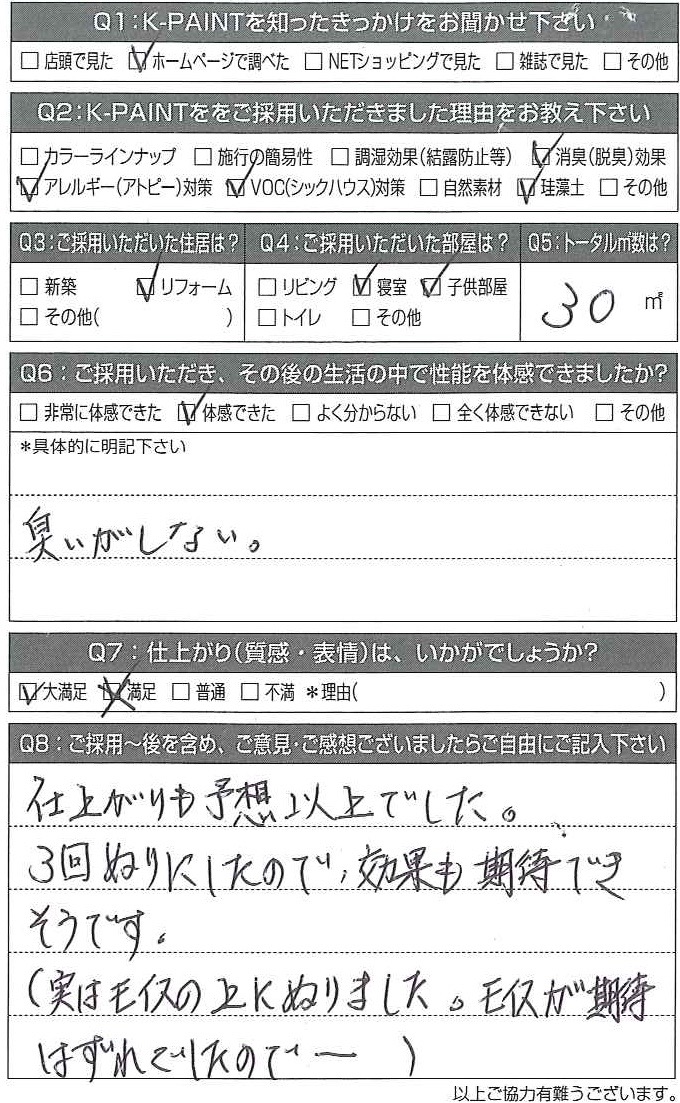 Q1:K-PAINTを知ったきっかけをお聞かせ下さい
□ 店頭で見た ☑ ホームページで調べた □ NETショッピングで見た □ 雑誌で見た □ その他
Q2:K-PAINTををご採用いただきました理由をお教え下さい
□ カラーラインナップ □ 施行の簡易性 □ 調湿効果(結露防止等) ☑ 消臭(脱臭)効果
☑ アレルギー(アトピー)対策 ☑ VOC(シックハウス)対策 □ 自然素材 ☑ 珪藻土 □ その他
Q3:ご採用いただいた住居は? Q4:ご採用いただいた部屋は? Q5:トータル㎡数は?
□ 新築 ☑ リフォーム □ リビング ☑ 寝室 ☑ 子供部屋 30 ㎡
□ その他( ) □ トイレ □ その他
Q6:ご採用いただき、その後の生活の中で性能を体感できましたか?
□ 非常に体感できた ☑ 体感できた □ よく分からない □ 全く体感できない □ その他
*具体的に明記下さい
臭いがしない。
Q7:仕上がり(質感・表情)は、いかがでしょうか?
☑ 大満足 ☒ 満足 □ 普通 □ 不満 *理由( )
Q8:ご採用～後を含め、ご意見・ご感想ございましたらご自由にご記入下さい
仕上がりも予想以上でした。
3回ぬりにしたので、効果も期待でき
そうです。
(実はモイスの上にぬりました。モイスが期待
はずれでしたので ー )
以上ご協力有難うございます。